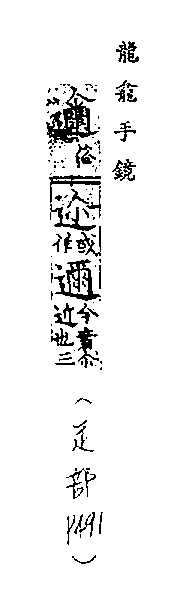 龍龕手鏡
俗迩或作邇今音尒近也三
（辵部P491）